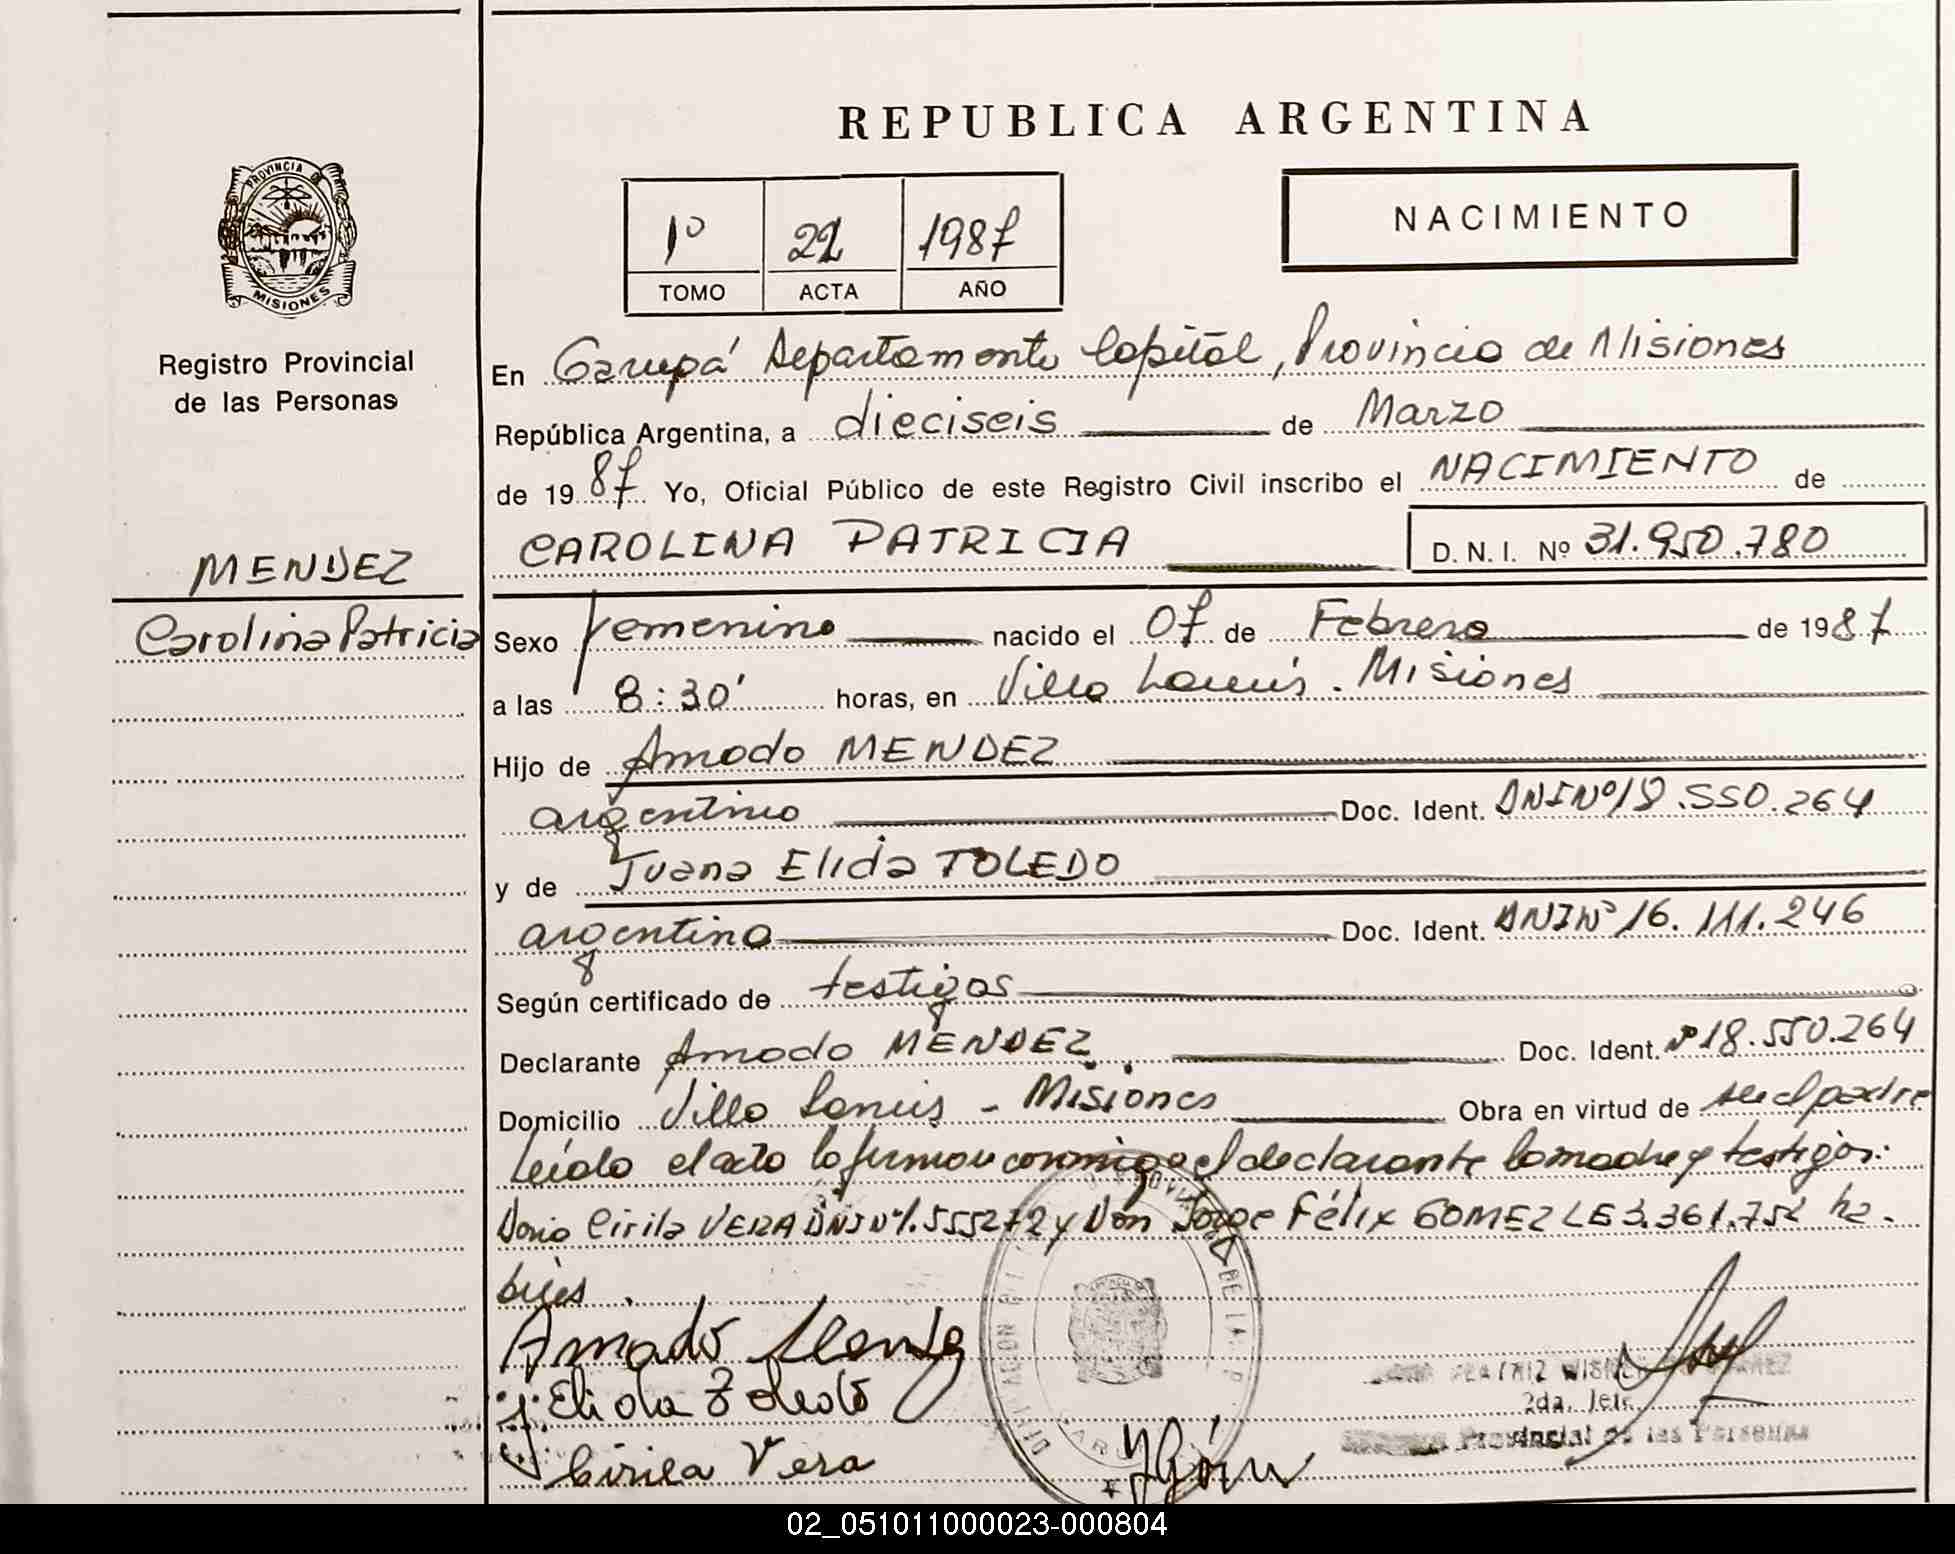 REPUBLICA ARGENTINA
PROVINCIA DE
MISIONES
Registro Provincial
de las Personas
MENDEZ
Carolina Patricia
1º 22 1987
TOMO ACTA AÑO
NACIMIENTO
En Garupá Departamento Capital, Provincia de Misiones
República Argentina, a dieciseis de Marzo
de 1987 Yo, Oficial Público de este Registro Civil inscribo el NACIMIENTO de
CAROLINA PATRICIA D. N. I. Nº 31.950.780
Sexo femenino nacido el 07 de Febrero de 1987
a las 8:30' horas, en Villa Lanús. Misiones
Hijo de Amado MENDEZ
argentino Doc. Ident. DNI Nº 18.550.264
y de Juana Elida TOLEDO
argentina Doc. Ident. DNI Nº 16.111.246
Según certificado de testigos
Declarante Amado MENDEZ Doc. Ident. Nº 18.550.264
Domicilio Villa Lanús - Misiones Obra en virtud de ser el padre
Leída el acta la firman conmigo el declarante la madre y testigos:
Doña Cirila VERA DNI Nº y Don Jorge Félix GOMEZ LE 3.361.752 há-
biles.
Amado Mendez
J. Elida Toledo
Cirila Vera
BEATRIZ
2da. Jefe
Provincial de las Personas
02_051011000023-000804